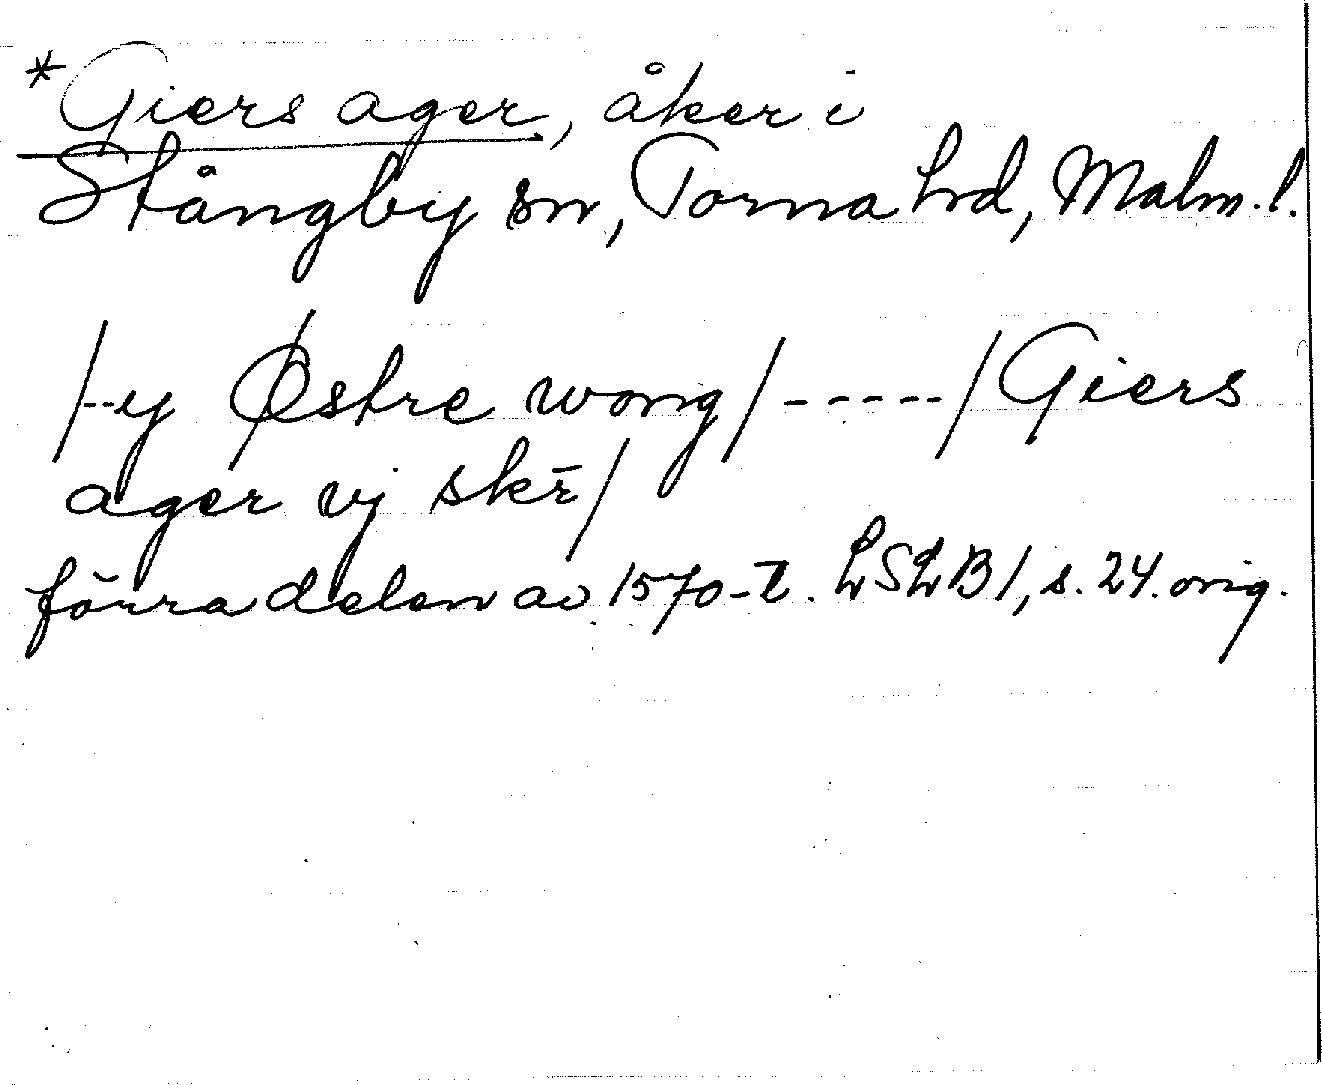 *Giers ager, åker i
Stångby sn, Torna hd, Malm. l.
/--y Østre wong/-----/Giers
ager vj skr̄/
förra delen av 1570-t. LSLB1, s. 24. orig.